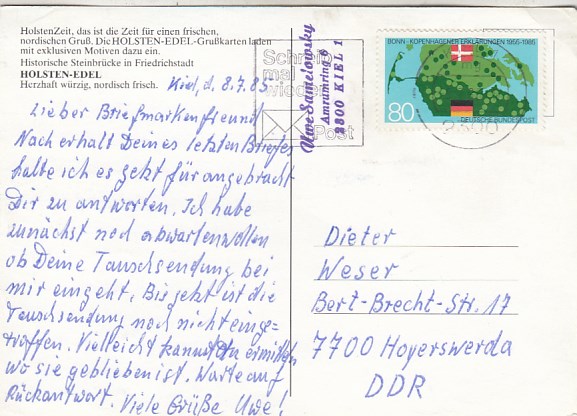 HolstenZeit, das ist die Zeit für einen frischen,
nordischen Gruß. Die HOLSTEN-EDEL-Grußkarten laden
mit exklusiven Motiven dazu ein.
Historische Steinbrücke in Friedrichstadt
HOLSTEN-EDEL
Herzhaft würzig, nordisch frisch.
Kiel, d. 8.7.85
Lieber Briefmarkenfreund!
Nach erhalt Deines letzten Briefes
halte ich es jetzt für angebracht
Dir zu antworten. Ich habe
zunächst noch abwarten wollen
ob Deine Tauschsendung bei
mir eingeht. Bis jetzt ist die
Tauschsendung noch nicht einge-
troffen. Vielleicht kannst Du ermitteln
wo sie geblieben ist. Warte auf
Rückantwort. Viele Grüße Uwe!
Schreib
mal
wieder
Post
Uwe
Amrumring 6
2300 KIEL 1
BONN-KOPENHAGENER ERKLÄRUNGEN 1955-1985
80
DEUTSCHE BUNDESPOST
Dieter
Weser
Bert-Brecht-Str. 17
7700 Hoyerswerda
DDR